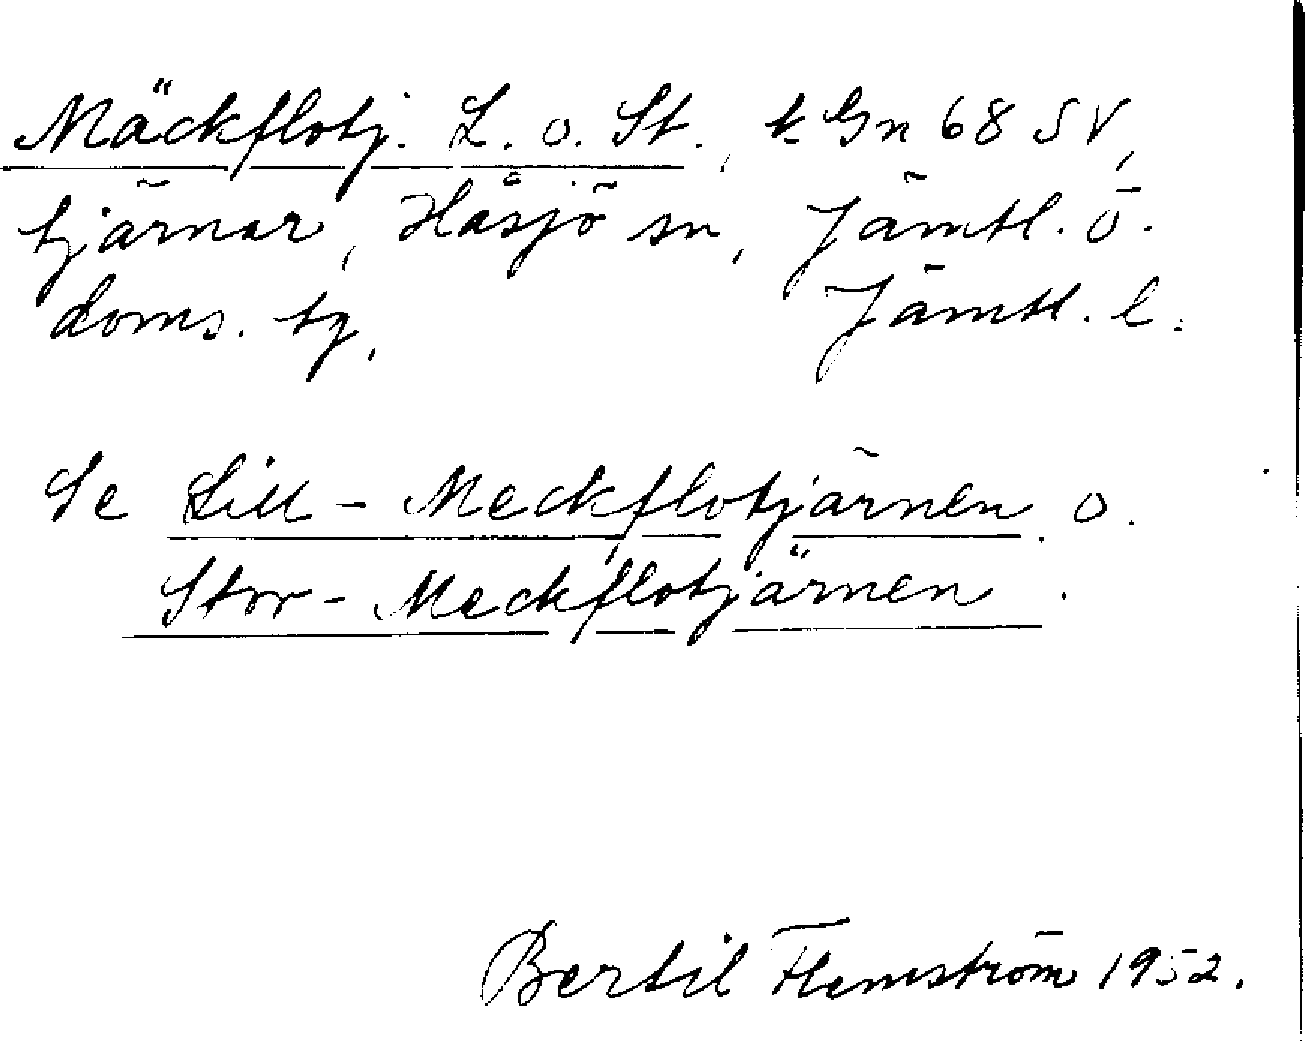 Mäckflotj. L. o. St., k Gn 68 SV,
tjärnar, Håsjö sn, Jämtl. ö.
doms. tg, Jämtl. l.
Se Lill-Meckflotjärnen o.
Stor-Meckflotjärnen.
Bertil Flemström 1952.